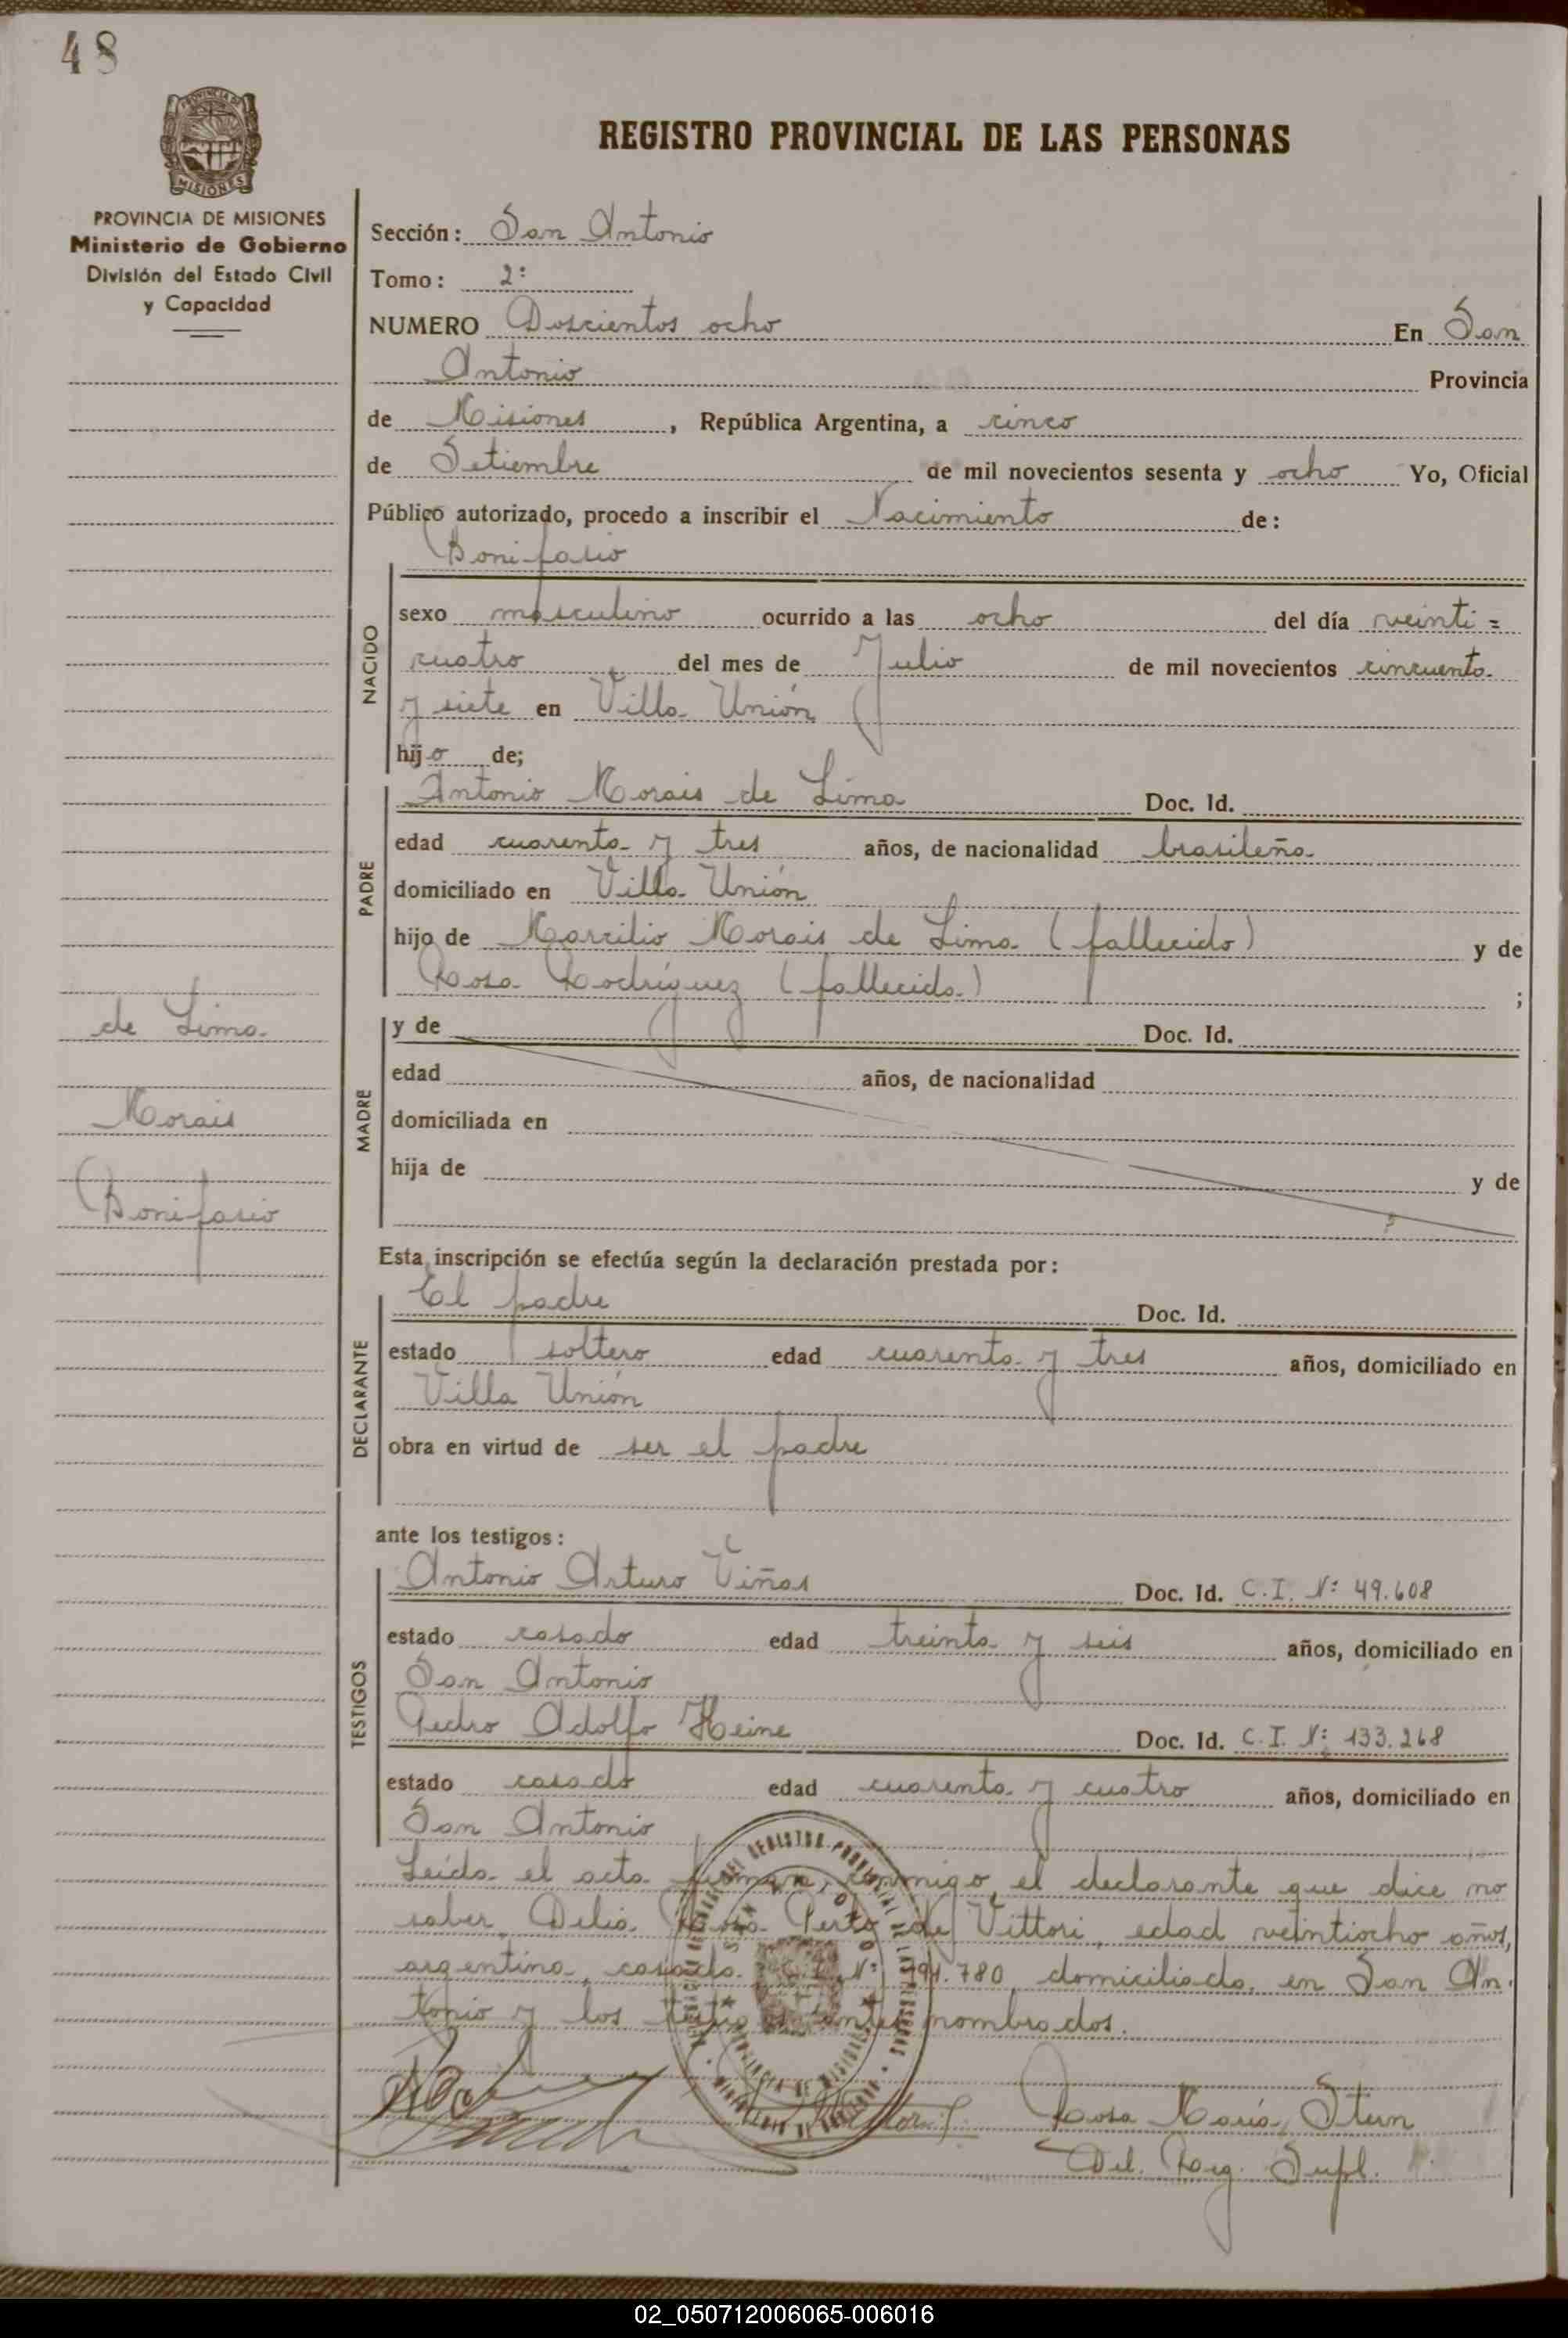 48
PROVINCIA DE MISIONES
Ministerio de Gobierno
División del Estado Civil
y Capacidad
REGISTRO PROVINCIAL DE LAS PERSONAS
Sección: San Antonio
Tomo: 2º
NUMERO Doscientos ocho En San
Antonio Provincia
de Misiones, República Argentina, a cinco
de Setiembre de mil novecientos sesenta y ocho Yo, Oficial
Público autorizado, procedo a inscribir el Nacimiento de:
Bonifasio
NACIDO
sexo masculino ocurrido a las ocho del día veinti=
cuatro del mes de Julio de mil novecientos cincuenta
y siete en Villa Unión
hijo de;
PADRE
Antonio Morais de Lima Doc. Id.
edad cuarenta y tres años, de nacionalidad brasileña
domiciliado en Villa Unión
hijo de Marcilio Morais de Lima (fallecido) y de
Rosa Rodríguez (fallecida) ;
de Lima
Morais
Bonifasio
MADRE
y de Doc. Id.
edad años, de nacionalidad
domiciliada en
hija de y de
Esta inscripción se efectúa según la declaración prestada por:
DECLARANTE
El padre Doc. Id.
estado soltero edad cuarenta y tres años, domiciliado en
Villa Unión
obra en virtud de ser el padre
ante los testigos:
TESTIGOS
Antonio Arturo Viñas Doc. Id. C.I. Nº 49.608
estado casado edad treinta y seis años, domiciliado en
San Antonio
Pedro Adolfo Heine Doc. Id. C.I. Nº 133.268
estado casado edad cuarenta y cuatro años, domiciliado en
San Antonio
Leída el acta firman, conmigo, el declarante que dice no
saber, Delia de Vittori, edad veintiocho años,
argentina, casada. domiciliada, en San An-
tonio y los nombrados.
Rosa María Stern
Del. Reg. Supl.
02_050712006065-006016